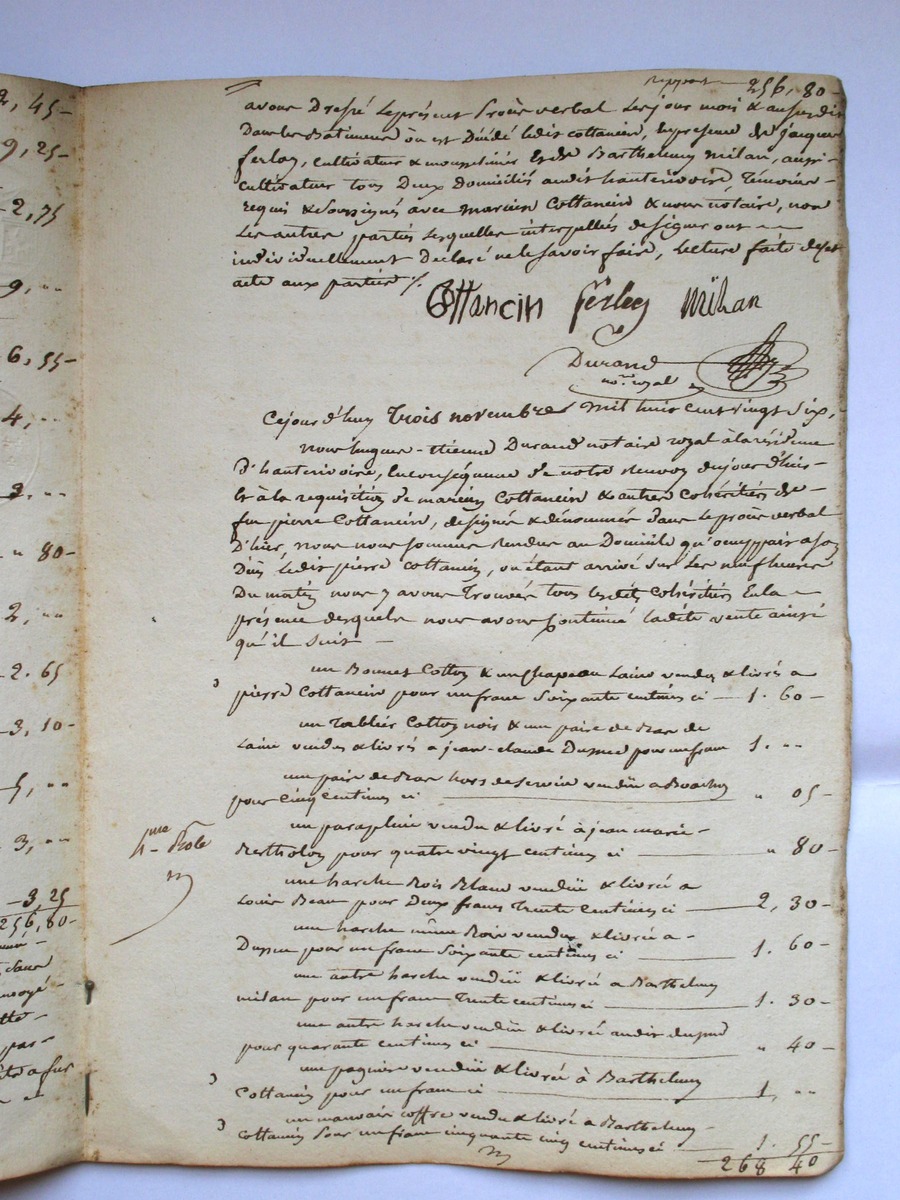 2, 45-
9, 25-
-2, 75
9, ""
6, 55-
4, "
2. ""
" 80-
2, ""
2. 65
-3, 10-
5, ""
3, ""
-3, 25
256, 80-
report 256, 80-
avons Dressé le présent Procès verbal les jour mois & an susdits
Dans les Batimens où est Décédé ledit Cottancin, En presence de jacques
ferley, cultivateur & mousselinier Et de Barthelemy Milan, aussi
cultivateur tous Deux domiciliés audit hauterivoire, Témoins
requis & Soussignés avec marcien Cottancin & nous notaire, non
Les autres parties lesquelles interpellés de signer ont
individuellement Declaré ne le savoir faire, Lecture faite du présent
acte aux parties /.
Cottancin ferley Milan
Durand
nore. royal
Cejourd'huy Trois novembre Mil huit cent vingt Six,
Nous hugues-Etienne Durand notaire royal à la résidence
D'hauterivoire, En conséquence de notre Renvoy du jour d'hier
Et à la requisition de marcien Cottancin & autres Cohéritiers de
feu pierre Cottancin, designés & dénommés dans le procès verbal
D'hier, nous nous sommes Rendus au Domicile qu'occuppait a son
Décès Ledit pierre Cottancin, où étant arrivé sur Les neuf heures
Du matin nous y avons Trouvés tous lesdits Cohéritiers En la
présence desquels nous avons Continué ladite vente ainsi
qu'il suit -
un Bonnet Cotton & un chapeau Laine vendus & livrés a
pierre Cottancin pour un franc Soixante centimes ci - 1. 60 -
un Tablier Cotton noir & une paire de Bas de
Laine vendus & livrés a jean-claude Dupné pour un franc 1. ""
une paire de Bas hors de service vendüe a Boachon
pour Cinq centimes ci " 05-
un parapluie vendu & livré à jean marie
4me Role
Bertholon pour quatre vingt centimes ci " 80-
une hache Bois Blanc vendüe & livrée a
Louis Beau pour Deux francs Trente Centimes ci 2, 30-
une hache même Bois vendue & livrée a
pour un franc Soixante centimes ci 1. 60-
une autre hache vendüe & livrée a Barthelemy
milan pour un franc Trente centimes ci 1. 30-
une autre hache vendüe & livrée audit
pour quarante centimes ci " 40-
une vendüe & livrée à Barthelemy
Cottancin pour un franc ci 1, ""
un mauvais coffre vendu & livré a Barthelemy
Cottancin pour un franc cinquante cinq centimes ci 1. 55-
268 40